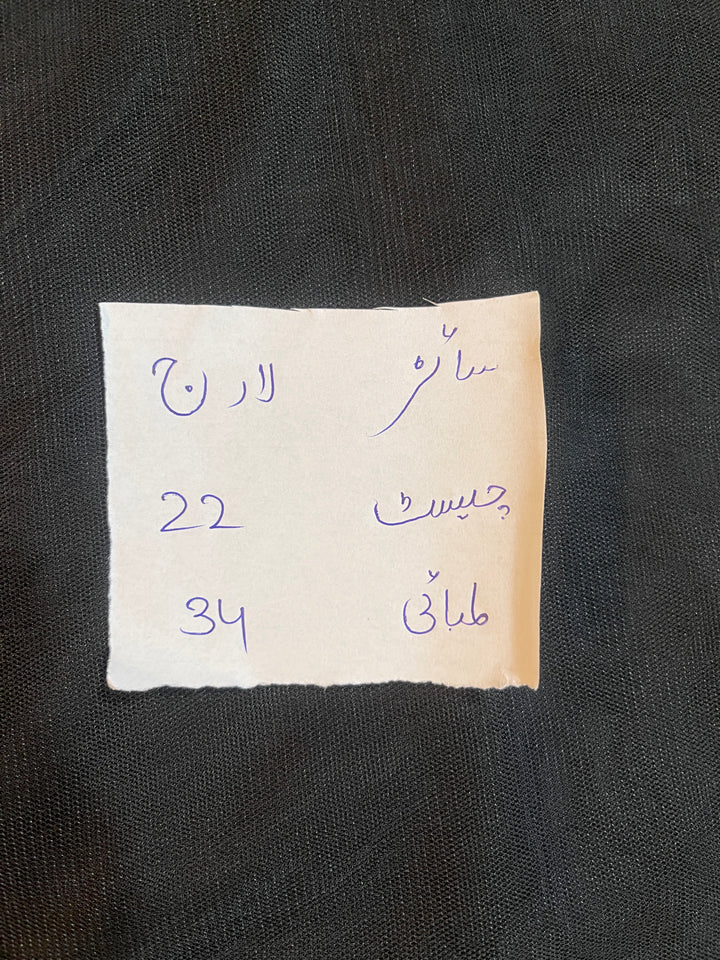 سائز لارج
چیسٹ 22
لمبائی 34